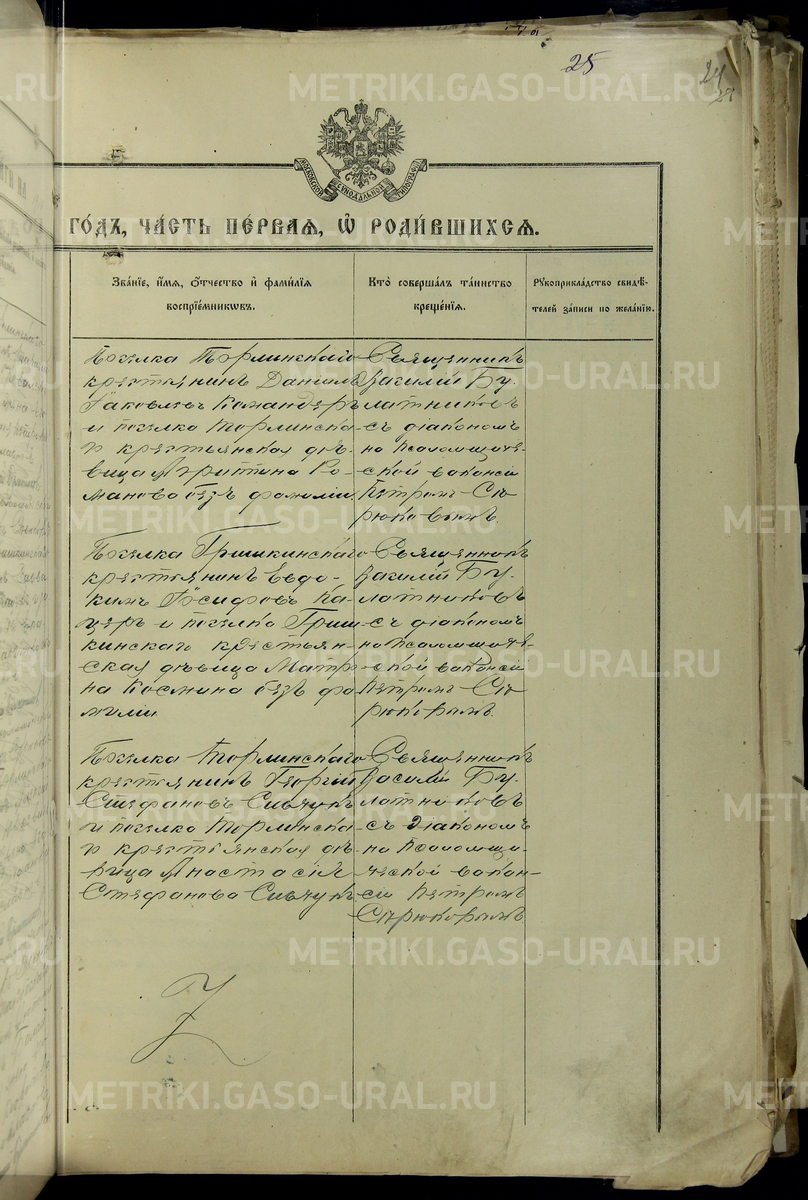 25
24
27
МОСКОВСКОЙ СУНОДАЛЬНОЙ ТИПОГРАФІИ
ГО́ДЪ, ЧА́СТЬ ПЕ́РВАѦ, Ѡ РОДИ́ВШИХСѦ.
Зва́нїе, и́мѧ, о́тчество и фами́лїѧ
воспрїе́мникѡвъ.
Кто̀ соверша́лъ та́инство
креще́нїѧ.
Рꙋкоприкла́дство свидѣ́-
телей за́писи по жела́нїю.
Поселка Торлинскаго
крестьянинъ Даніилъ
Іаковлевъ Командеръ
и поселка Торлинска-
го крестьянская дѣ-
вица Харитина Ро-
манова безъ фамиліи
Священникъ
Василій Бу-
латниковъ
съ діакономъ
на псаломщиче-
ской ваканси
Петромъ Сы-
рюковымъ.
Поселка Гришкинскаго
крестьянинъ Евдо-
кимъ Іосифовъ Ка-
церъ и поселка Гриш-
кинскаго крестьян-
ская дѣвица Матро-
на Космина безъ фа-
миліи
Священникъ
Василій Бу-
латниковъ
съ діакономъ
на псаломщиче-
ской ваканси
Петромъ Сы-
рюковымъ.
Поселка Торлинскаго
крестьянинъ Георгій
Стефановъ Сивчукъ
и поселка Торлинска-
го крестьянская дѣ-
вица Анастасія
Стефанова Сивчукъ
Священникъ
Василій Бу-
латниковъ
съ діакономъ
на псаломщи-
ческой вакан-
си Петромъ
Сырюковымъ
METRIKI.GASO-URAL.RU